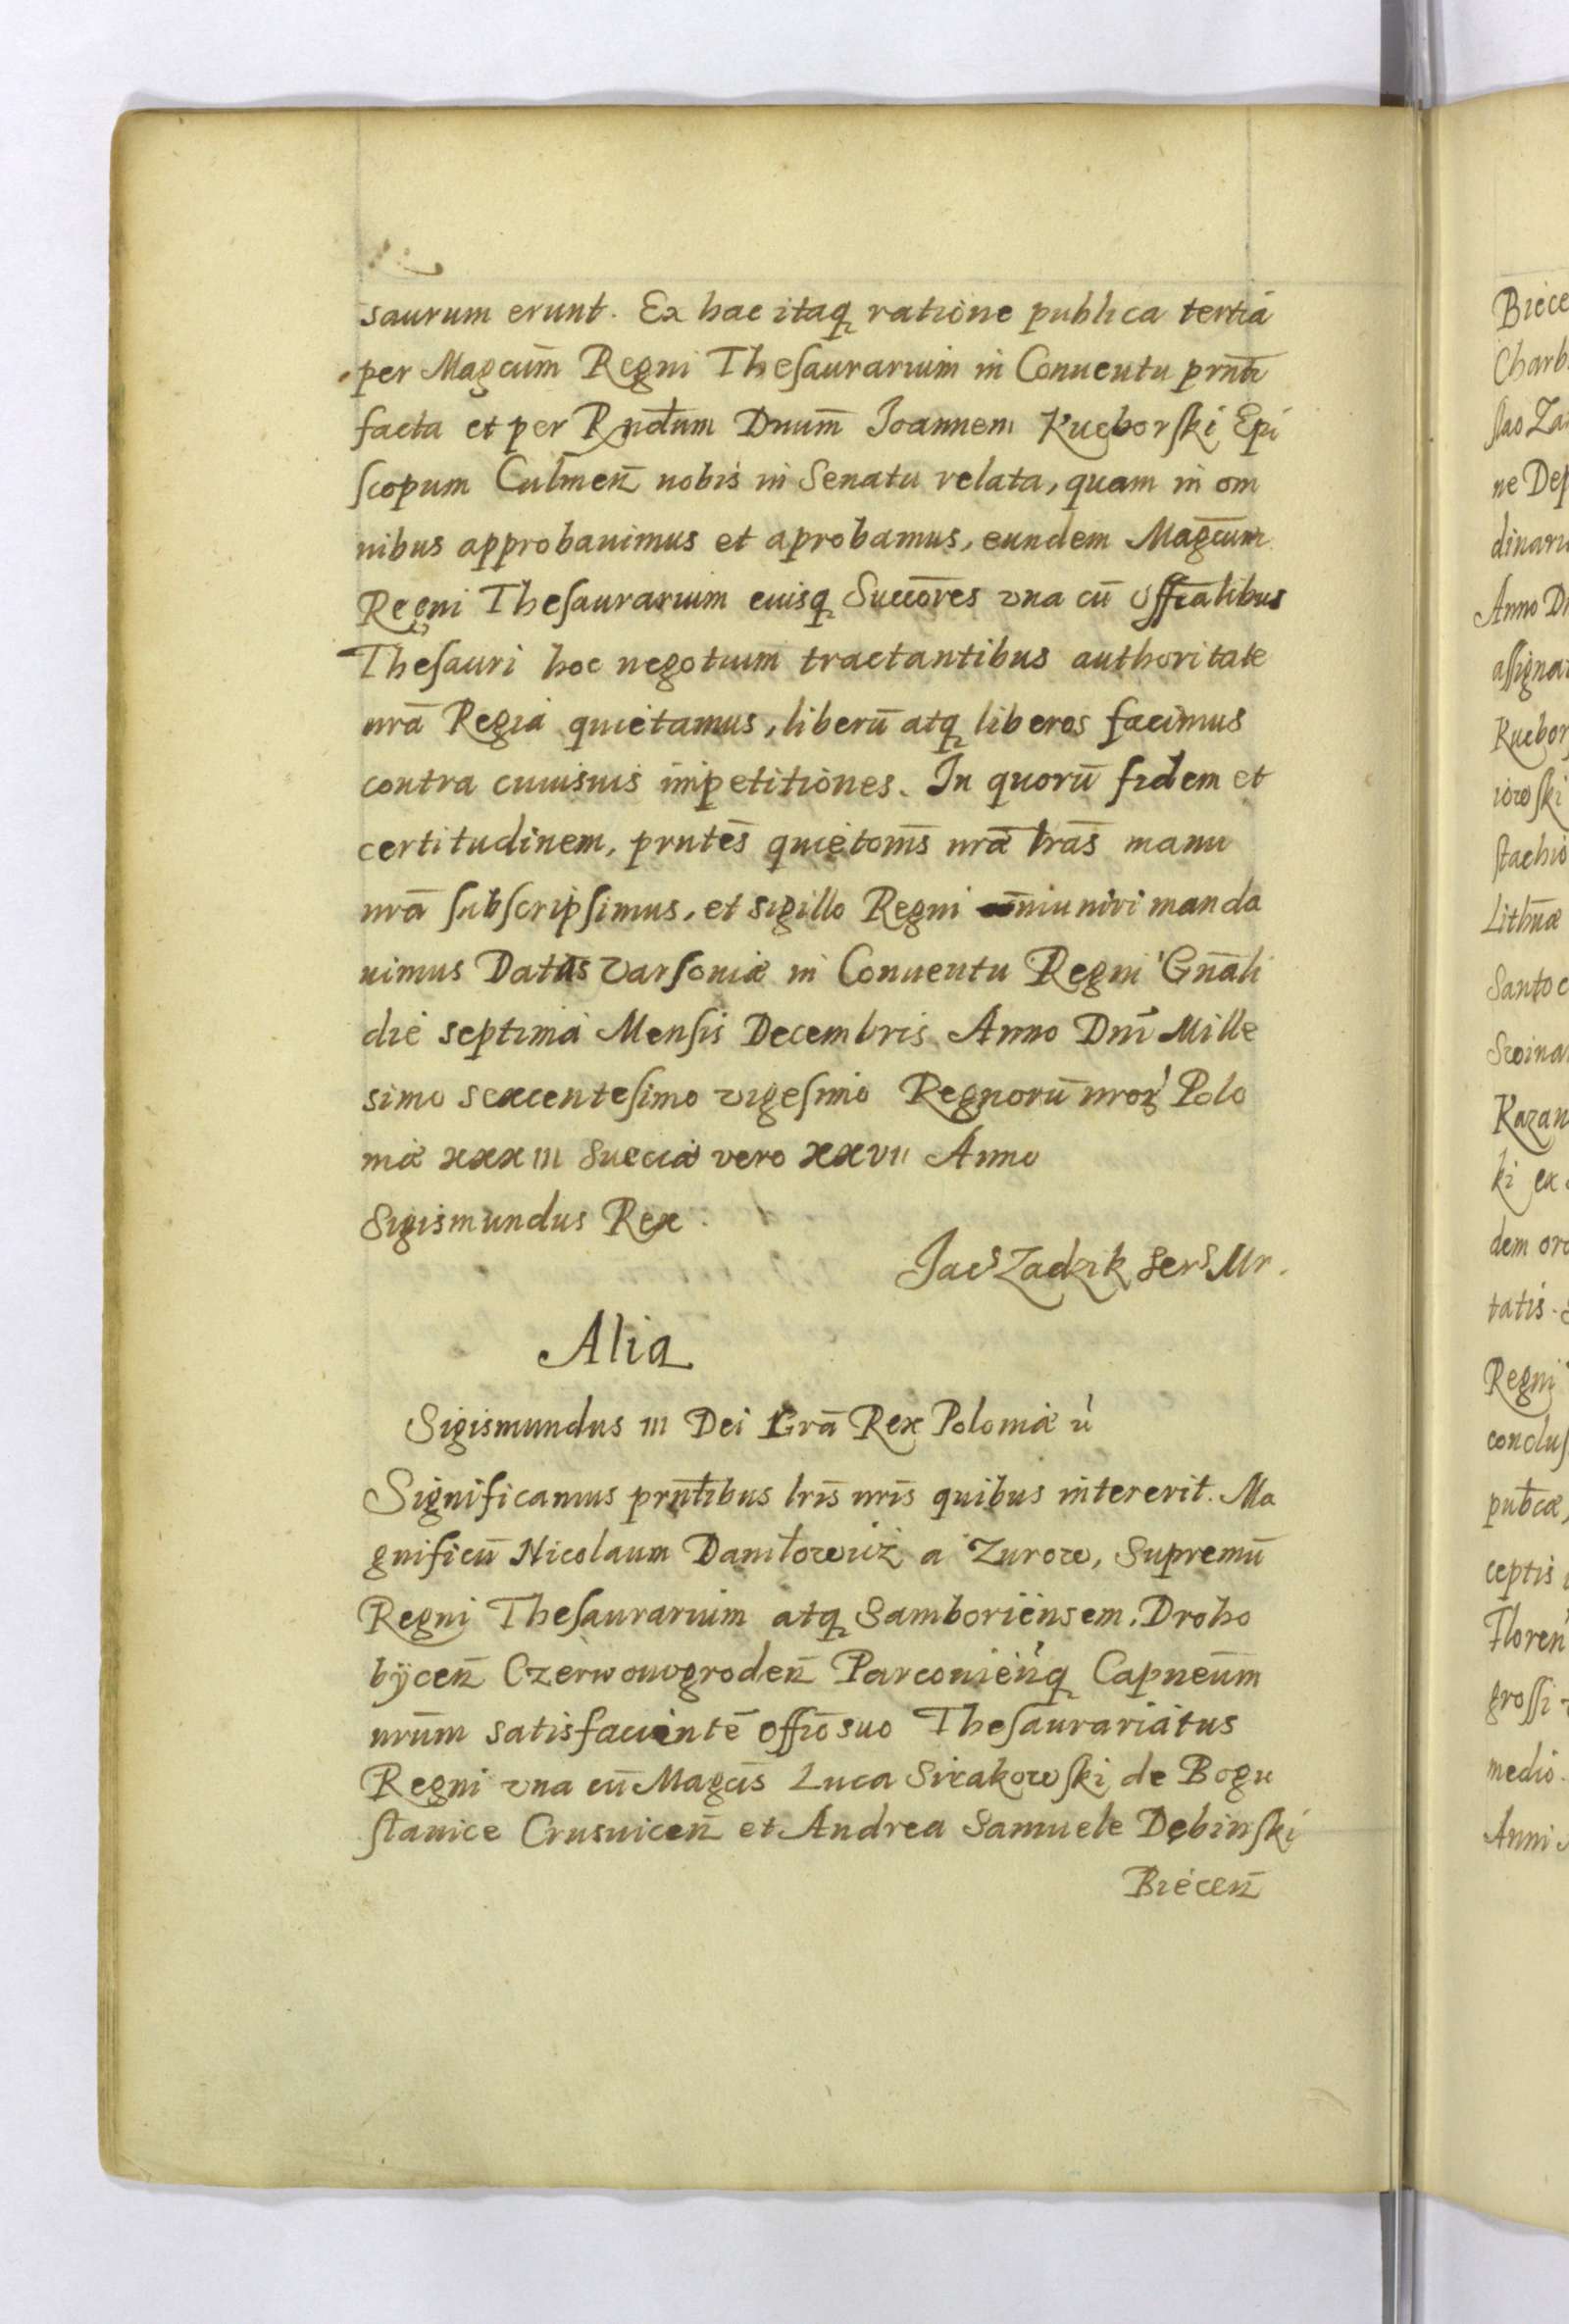 saurum erunt. Ex hac itaq ratione publica tertiá
per Magcūm Regni Thesaurarium in Conuentu prnti
facta et per Rndum Dnum̄ Joannem Kucborski Epi
scopum Culmen̄ nobis in Senatu relata, quam in om
nibus approbauimus et aprobamus, eundem Magcum̄
Regni Thesaurarium eiusq Succōres vna cū offialibus
Thesauri hoc negotium tractantibus authoritate
nrā Regiá quietamus, liberū atq liberos facimus
contra cuiusuis impetitiones. In quorū fidem et
certitudinem, prntēs quietom̄s nrā lrās manu
nrā subscripsimus, et sigillo Regni muniri manda
uimus Datas Varsoniæ in Conuentu Regni Gnāli
die septima Mensis Decembris Anno Dnī Mille
simo sexcentesimo vigesimo Regnorū nror Polo
niæ xxxiii Sueciæ vero xxvii Anno
Sigismundus Rex.
Jacs Zadzik Sers Mr.
Alia
Sigismundus iii Dei Grā Rex Poloniæ
Significamus prntibus lrīs nrīs quibus intererit. Ma
gnificū Nicolaum Daniłowicż a Zurow, Supremū
Regni Thesaurarium atq Samboriensem, Droho
bÿcen̄ Czerwonogroden̄ Parconienq Capneūm
nrūm satisfacientē offīo suo Thesaurariatus
Regni vna cū Magcīs Luca Sirakowski de Bogu
slauice Crusuicen̄ et Andrea Samuele Dębinski
Biecen̄
Biece
Charb
slao Za
ne Dep
dinari
Anno D
assigna
Kucbor
iowski
stachio
Lithūæ
Santoc
Swina
Kazan
ki ex
dem or
tatis.
Regni
conclus
pubcæ,
ceptis
Floren
grossi
medio.
Anni